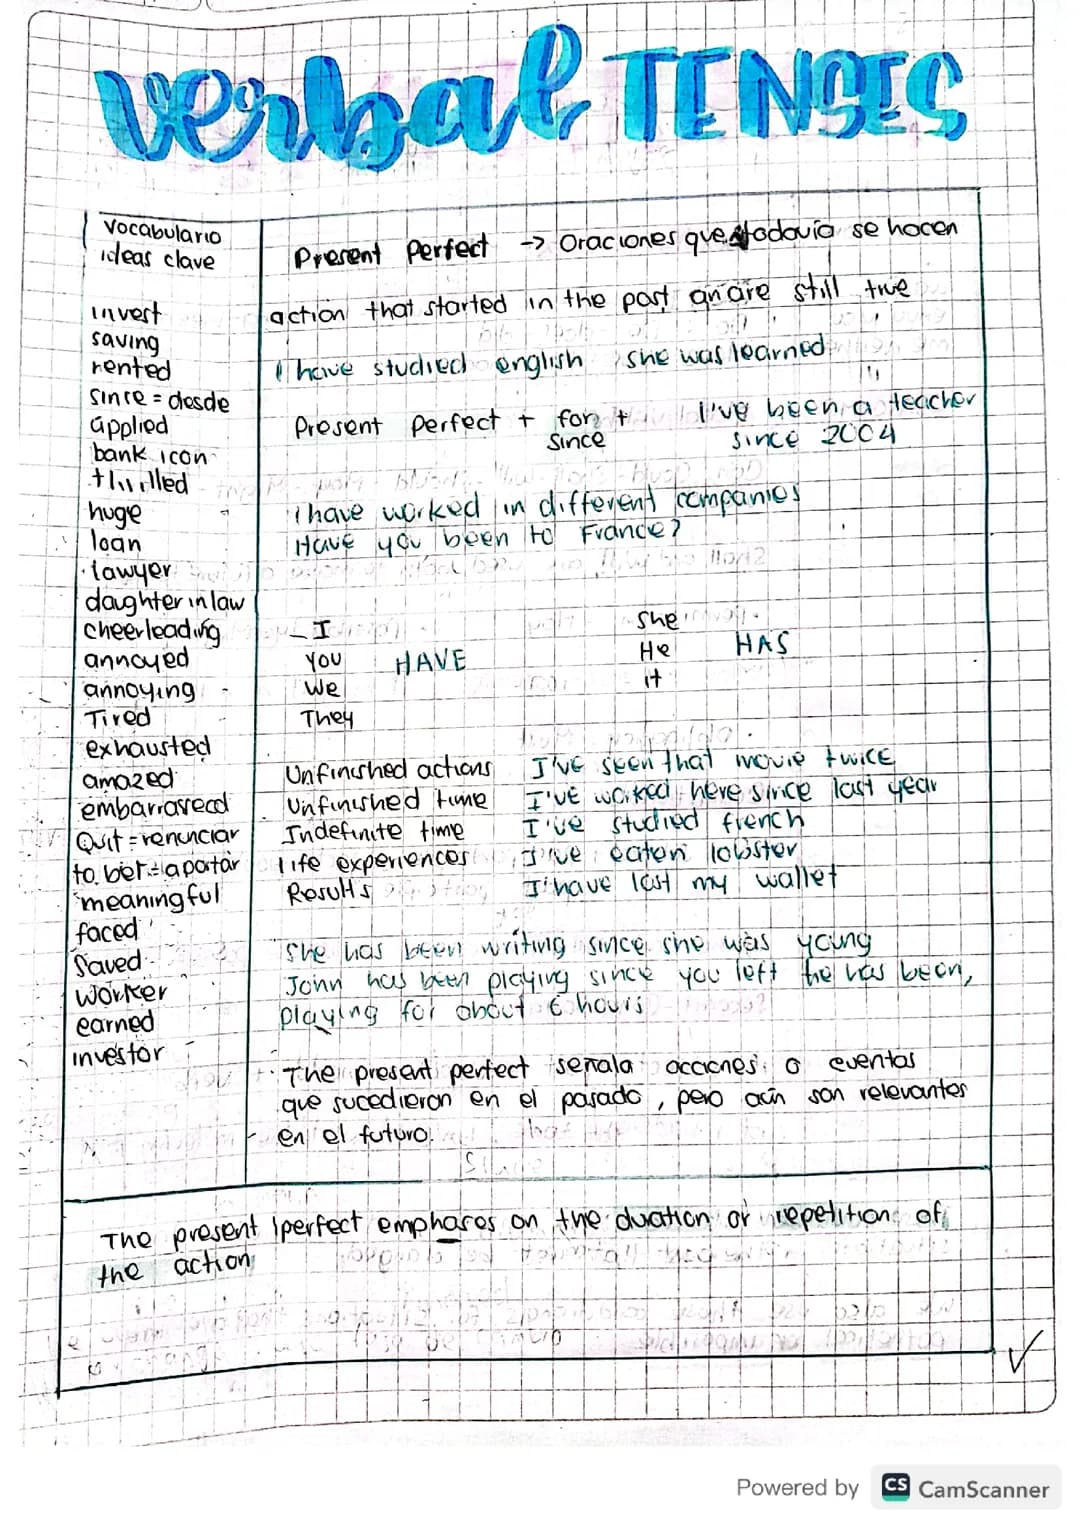 verbal TENSES
Vocabulario
ideas clave
invest
saving
rented
since = desde
applied
bank icon
thrilled
huge
loan
lawyer
daughter in law
cheerleading
annoyed
annoying
Tired
exhausted
amazed
embarrased
Quit = renunciar
to bet = aportar
meaningful
faced
Saved
worker
earned
investor
Present Perfect -> Oraciones que todavía se hacen
action that started in the past an are still true
I have studied english she was learned
Present perfect + for + I've been a teacher
since since 2004
I have worked in different companies
Have you been to France?
I She
You HAVE He HAS
We it
They
Unfinished actions I've seen that movie twice
Unfinished time I've worked here since last year
Indefinite time I've studied french
life experiences I've eaten lobster
Results I have lost my wallet
She has been writing since she was young
John has been playing since you left he has been,
playing for about 6 hours
The present perfect señala acciones o eventos
que sucedieron en el pasado, pero aún son relevantes
en el futuro.
The present perfect emphares on the duation or repetition of
the action
Powered by CS CamScanner